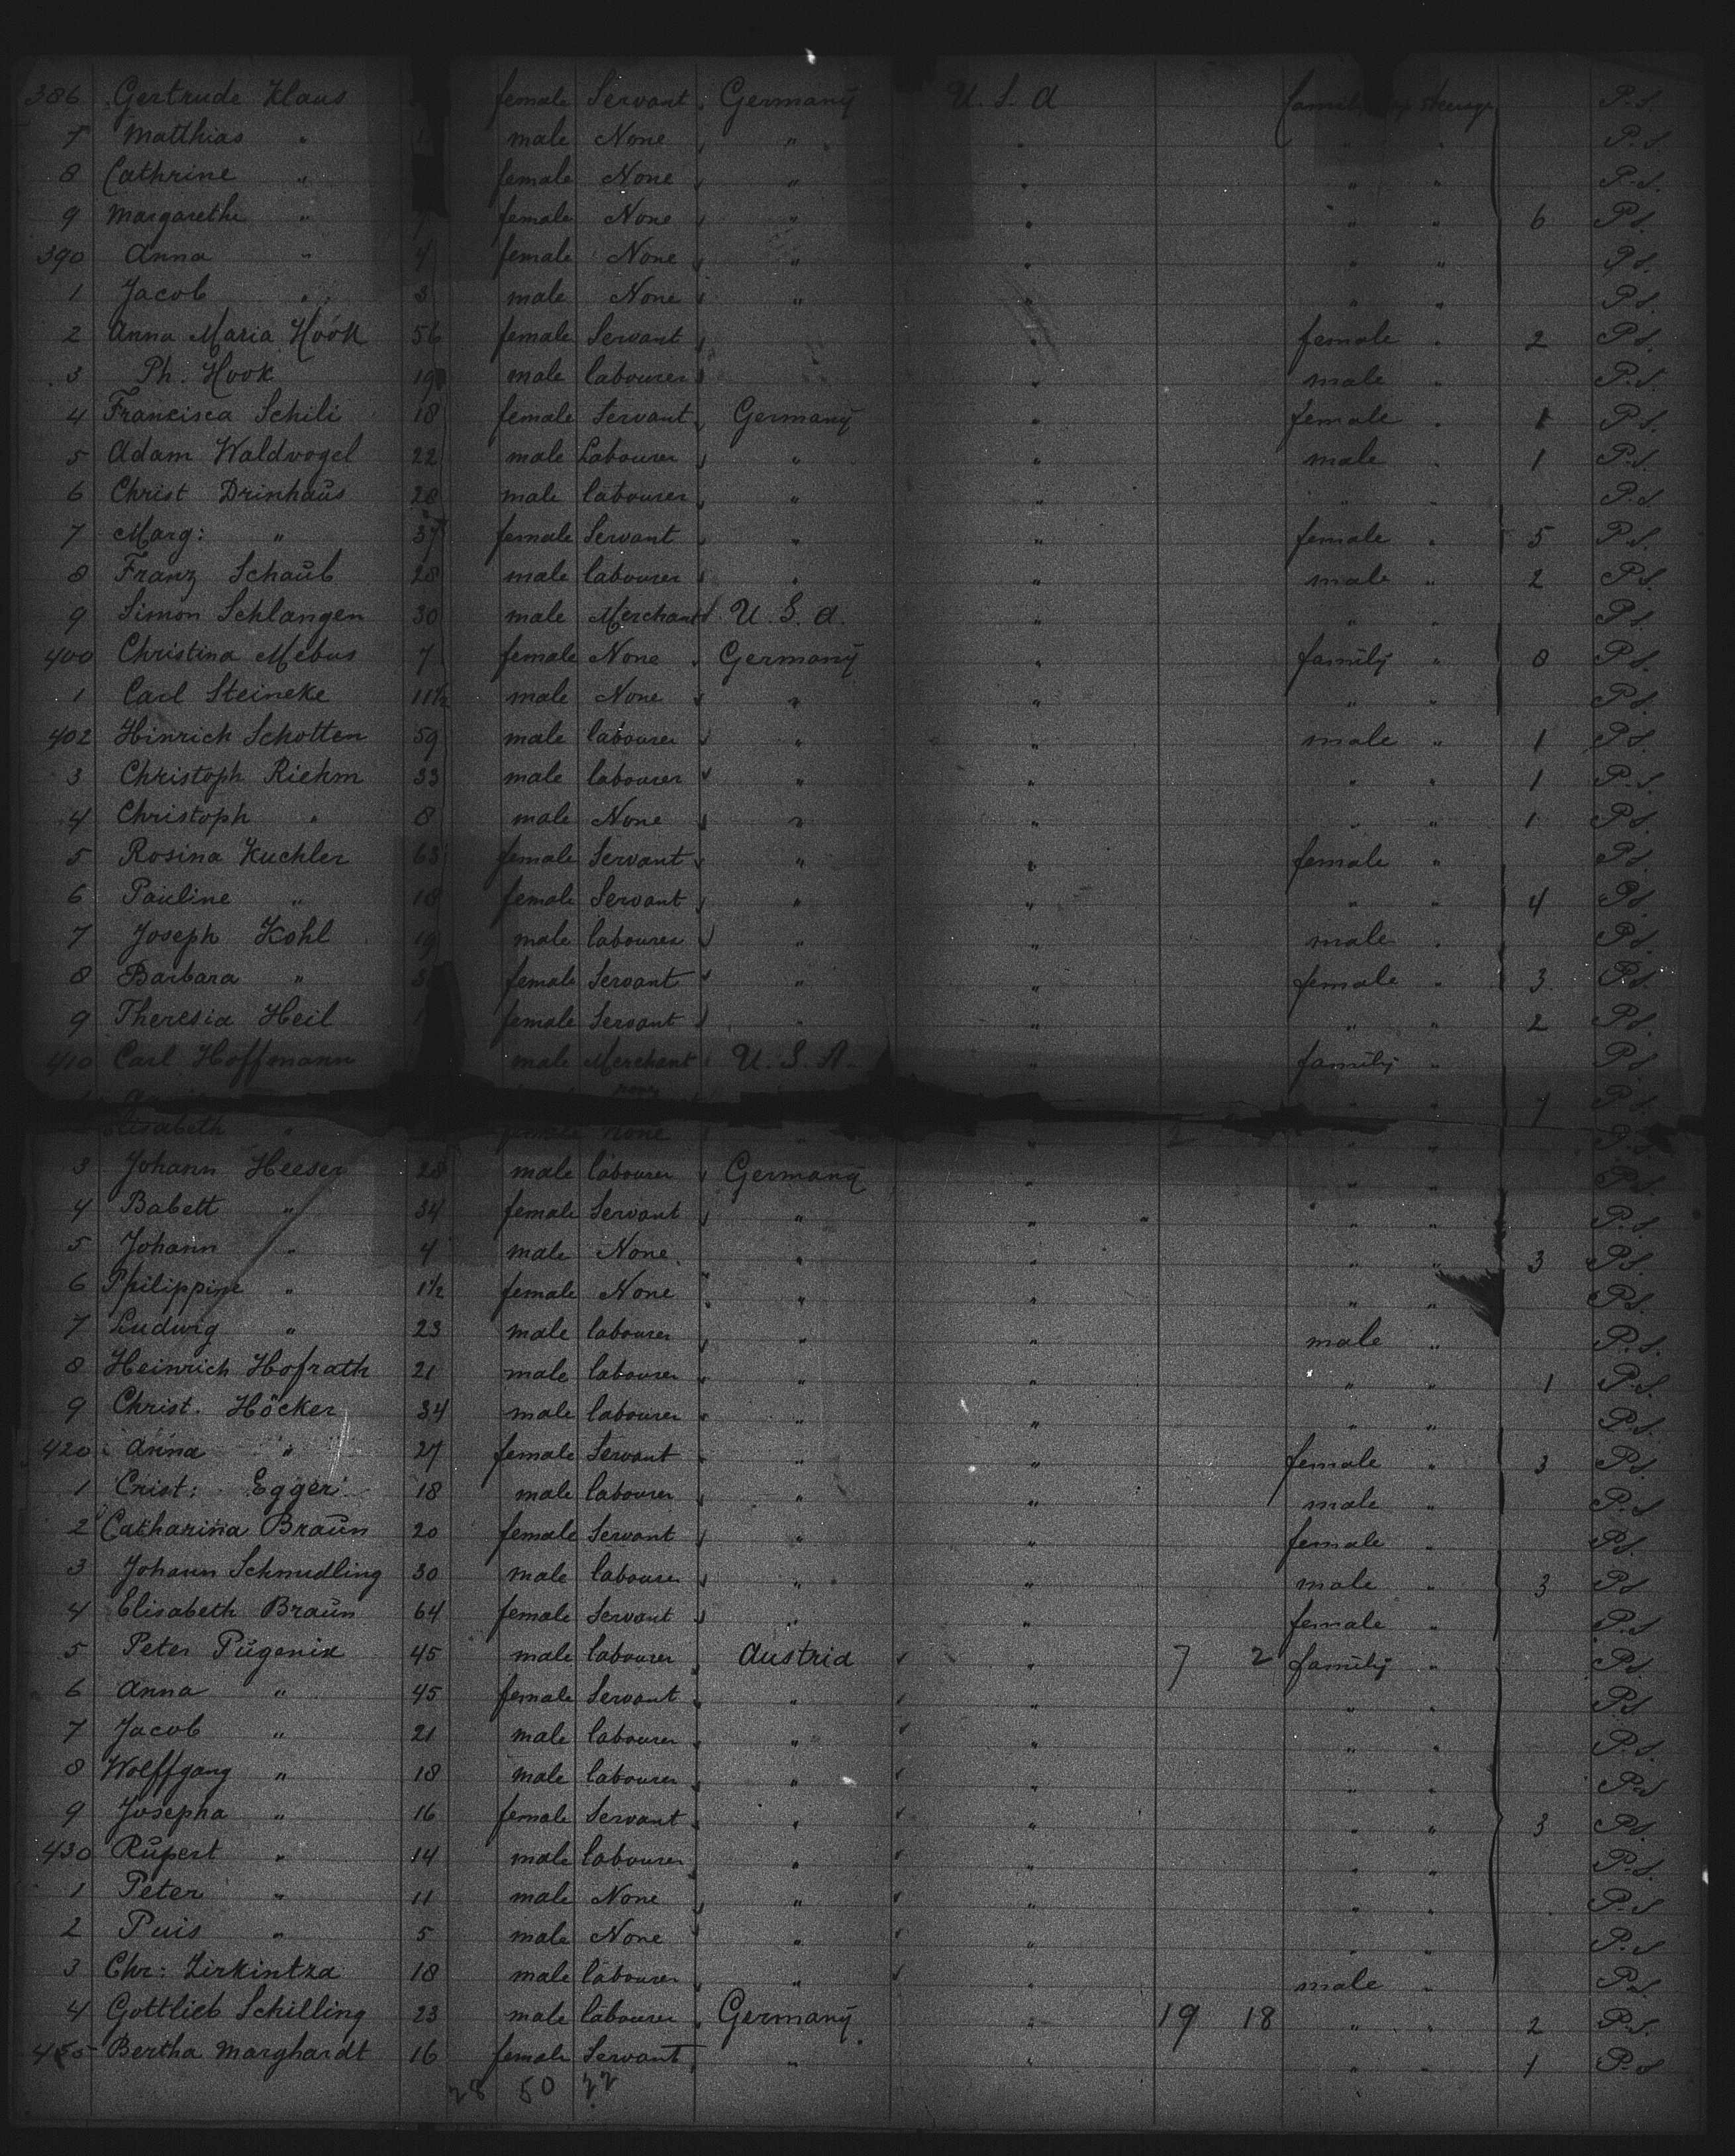 386 Gertrude Klaus female Servant Germany U. S. A steerage P. S.
7 Matthias " male None " " " " P. S.
8 Cathrine " female None " " " " P. S.
9 Margarethe " female None " " " " 6 P. S.
390 Anna " 4 female None " " " " P. S.
1 Jacob " 3 male None " " " " P. S.
2 Anna Maria Hook 56 female Servant " female " 2 P. S.
3 Ph. Hook 19 male labourer " male " P. S.
4 Francisca Schili 18 female Servant Germany " female " 1 P. S.
5 Adam Waldvogel 22 male Labourer " " male " 1 P. S.
6 Christ Drinhaŭs 28 male labourer " " " " P. S.
7 Marg: " 37 female Servant " " female " 5 P. S.
8 Franz Schaŭb 28 male labourer " " male " 2 P. S.
9 Simon Schlangen 30 male Merchant U. S. A. " " " P. S.
400 Christina Mebus 7 female None Germany " family " 8 P. S.
1 Carl Steineke 11½ male None " " " " P. S.
402 Hinrich Schotten 59 male labourer " " male " 1 P. S.
3 Christoph Riehm 33 male labourer " " " " 1 P. S.
4 Christoph " 8 male None " " " " 1 P. S.
5 Rosina Kuchler 63 female Servant " " female " P. S.
6 Pauline " 18 female Servant " " " " 4 P. S.
7 Joseph Kohl 19 male labourer " " male " P. S.
8 Barbara " female Servant " " female " 3 P. S.
9 Theresia Heil female Servant " " " " 2 P. S.
410 Carl Hoffmann male Merchant U. S. A. " family " P. S.
" " 1 P. S.
Elisabeth " female none " " 2 " " P. S.
3 Johann Heeser 28 male labourer Germany " " " P. S.
4 Babett " 34 female Servant " " " " " P. S.
5 Johann " 4 male None " " " " 3 P. S.
6 Philippine " 1½ female None " " " " P. S.
7 Ludwig " 23 male labourer " " male " P. S.
8 Heinrich Hofrath 21 male labourer " " " " 1 P. S.
9 Christ. Höcker 34 male labourer " " " " P. S.
420 Anna " 27 female Servant " " female " 3 P. S.
1 Crist: Egger 18 male labourer " " male " P. S
2 Catharina Braŭn 20 female Servant " " female " P. S.
3 Johann Schmudling 30 male labourer " " male " 3 P. S
4 Elisabeth Braŭn 64 female Servant " " female " P. S
5 Peter Pŭgenix 45 male labourer Austria " 7 2 family " P. S.
6 Anna " 45 female Servant " " " " P. S
7 Jacob " 21 male labourer " " " " P. S.
8 Wolffgang " 18 male labourer " " " " P. S
9 Josepha " 16 female Servant " " " " 3 P. S.
430 Rŭpert " 14 male labourer " " " " P. S.
1 Peter " 11 male None " " " " P. S
2 Puis " 5 male None " " " " P. S
3 Chr: Zirkintza 18 male labourer " " male " P. S.
4 Gottlieb Schilling 23 male labourer Germany " 19 18 " " 2 P. S.
Bertha Marghardt 16 female Servant " " " " 1 P. S
28 50 22